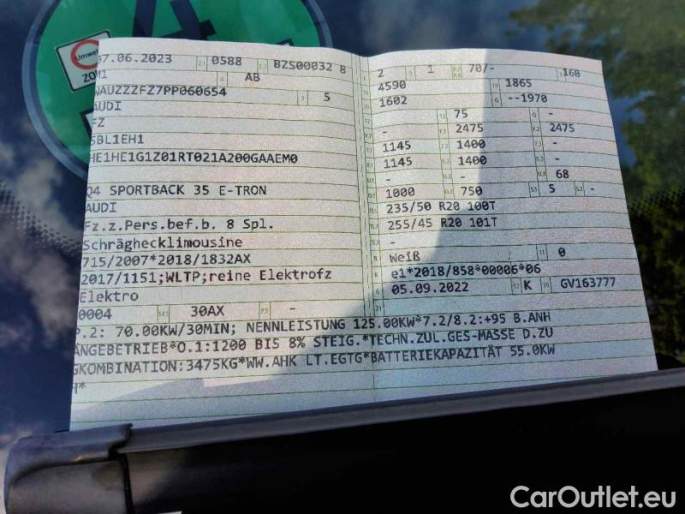 4
Umwelt
ZONE
07.06.2023 0588 BZS00032 8
M1 AB
WAUZZZFZ7PP060654 5
AUDI
FZ
SBL1EH1
HE1HE1G1Z01RT021A200GAAEM0
Q4 SPORTBACK 35 E-TRON
AUDI
Fz.z.Pers.bef.b. 8 Spl.
Schräghecklimousine
715/2007*2018/1832AX
2017/1151;WLTP;reine Elektrofz
Elektro
0004 30AX -
2 1 70/- 160
4590 1865
1602 --1970
- 75 -
- 2475 2475
1145 1400 -
1145 1400 -
- - 68
1000 750 5 -
235/50 R20 100T
255/45 R20 101T
-
Weiß 0
e1*2018/858*00006*06
05.09.2022 K GV163777
P.2: 70.00KW/30MIN; NENNLEISTUNG 125.00KW*7.2/8.2:+95 B.ANH
ÄNGEBETRIEB*O.1:1200 BIS 8% STEIG.*TECHN.ZUL.GES-MASSE D.ZU
GKOMBINATION:3475KG*WW.AHK LT.EGTG*BATTERIEKAPAZITÄT 55.0KW
H*
CarOutlet.eu